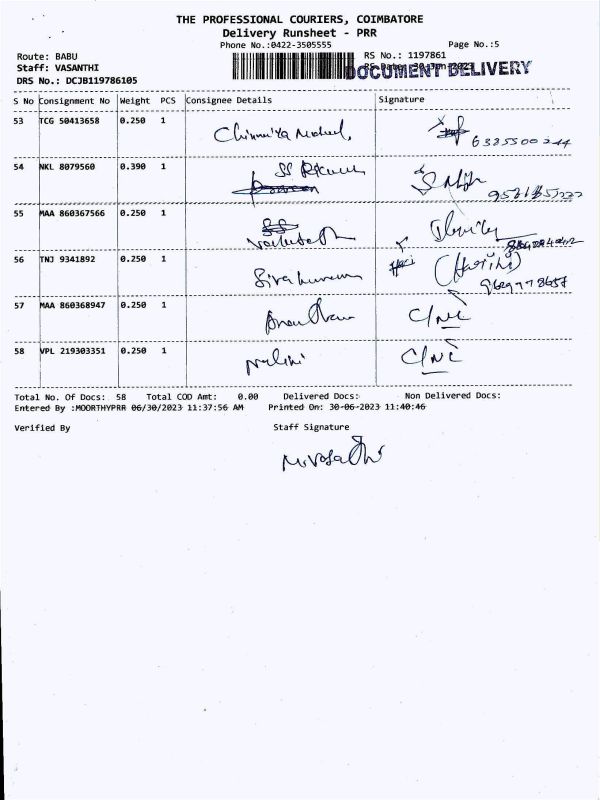 THE PROFESSIONAL COURIERS, COIMBATORE
Delivery Runsheet - PRR
Phone No.:0422-3505555 Page No.:5
Route: BABU RS No.: 1197861
Staff: VASANTHI RS Date: 30-Jun-2023
DOCUMENT DELIVERY
DRS No.: DCJB119786105
S No Consignment No Weight PCS Consignee Details Signature
53 TCG 50413658 0.250 1
54 NKL 8079560 0.390 1
55 MAA 860367566 0.250 1
56 TNJ 9341892 0.250 1 Sivakumar (Harini)
57 MAA 860368947 0.250 1
58 VPL 219303351 0.250 1 Nalini
Total No. Of Docs: 58 Total COD Amt: 0.00 Delivered Docs: Non Delivered Docs:
Entered By :MOORTHYPRR 06/30/2023 11:37:56 AM Printed On: 30-06-2023 11:40:46
Verified By Staff Signature